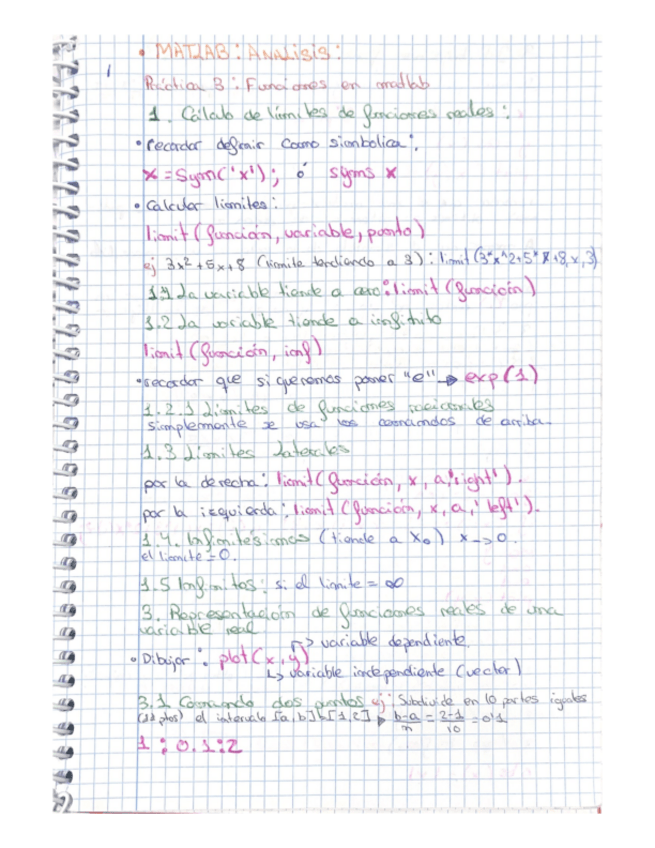 • MATLAB: Análisis:
Práctica 3: Funciones en matlab
1. Cálculo de límites de funciones reales:
• recordar definir como simbolica:
x = Sym('x'); ó syms x
• Calcular límites:
limit (función, variable, punto)
ej 3x²+5x+8 (límite tendiendo a 3): limit (3*x^2+5*x+8, x, 3)
1.1 La variable tiende a cero: limit (función)
1.2 La variable tiende a infinito
limit (función, inf)
• recordar que si queremos poner "e" → exp(1)
1.2.1 Límites de funciones racionales
simplemente se usa los comandos de arriba.
1.3 Límites laterales
por la derecha: limit (función, x, a, 'right').
por la izquierda: limit (función, x, a, 'left').
1.4. Infinitésimos (tiende a x₀) x->0.
el límite = 0.
1.5 Infinitos: si el límite = ∞
3. Representación de funciones reales de una
variable real
→ variable dependiente.
• Dibujar: plot(x,y)
↳ variable independiente (vector)
3.1 Comando dos puntos ej: Subdivide en 10 partes iguales
(11 ptos) el intervalo [a,b] [1,2] ▸ b-a/n = 2-1/10 = 0'1
1:0.1:2